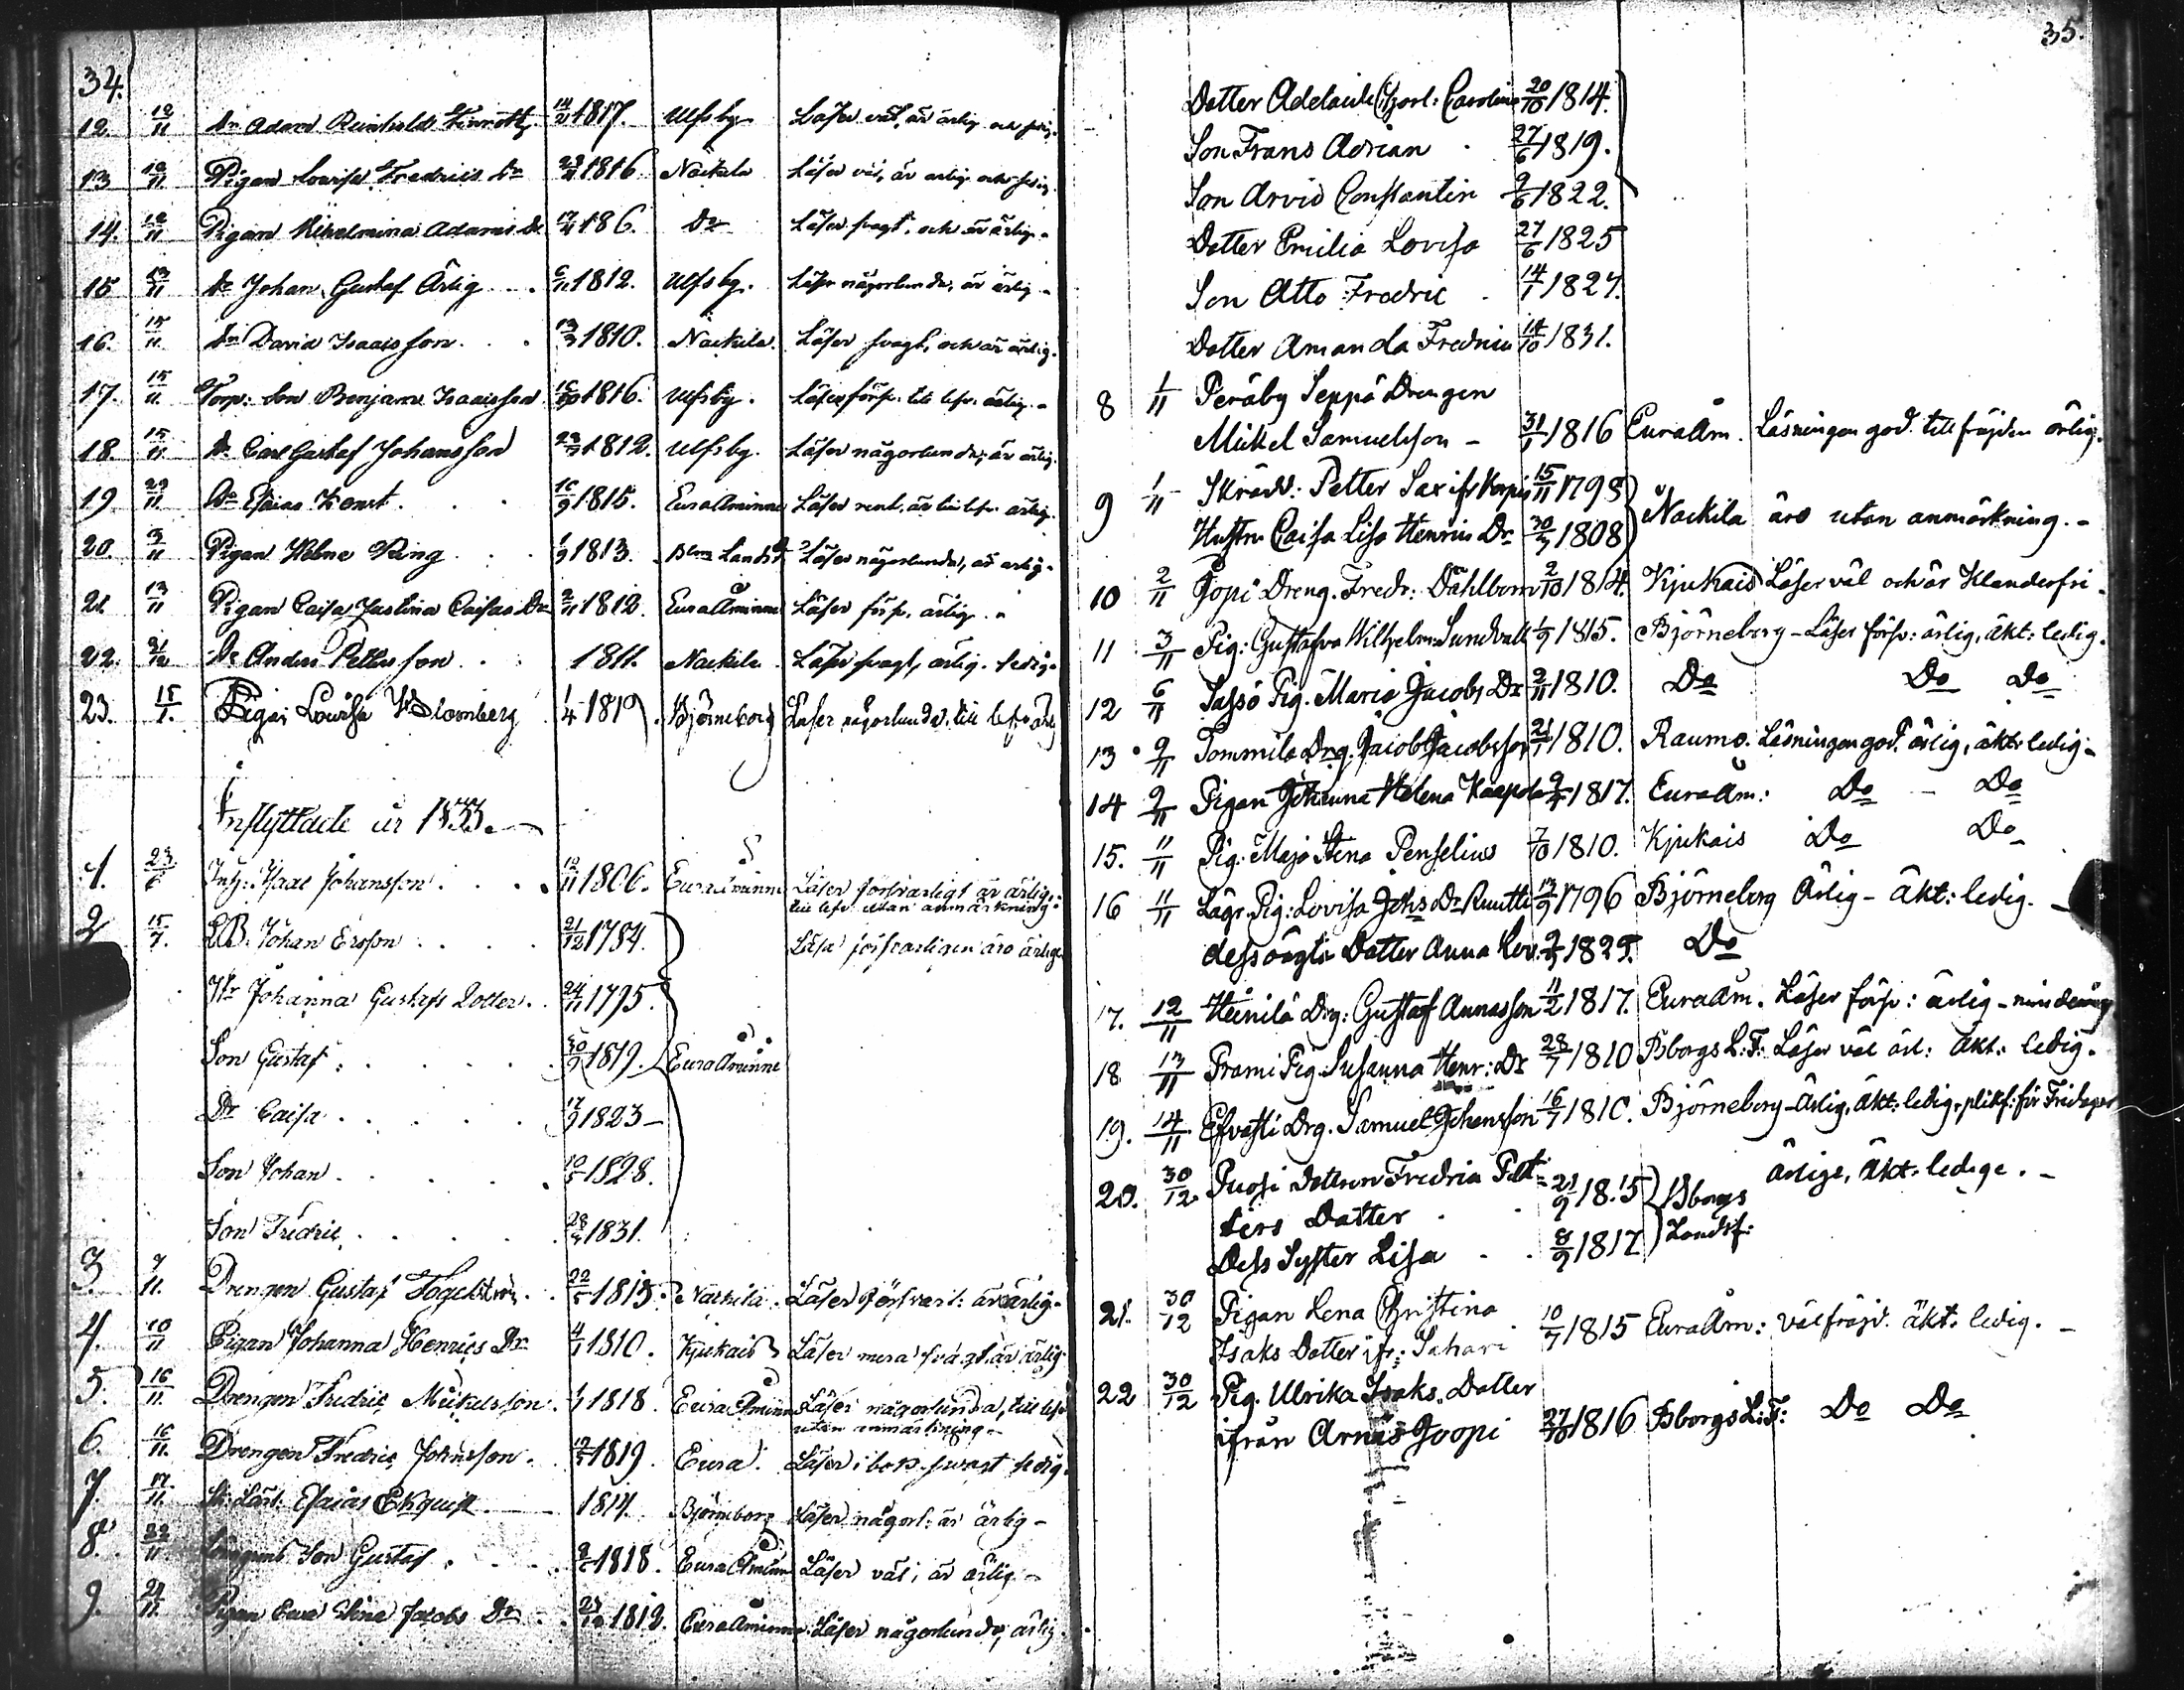 34.
12. 12/11 Dr Adam Reinhold 14/2 1817. Ulfsby Läser väl, är ärlig och ledig.
13 12/11 Pigan Lovisa Fredrics Dr 1816 Nackila Läser väl, är ärlig och ledig.
14. 12/11 Pigan Wilhelmina Adams Dr 186. Do Läser svagt, och är ärlig.
15 13/11 Dr Johan Gustaf Ärlig 1812. Ulfsby. Läser någorlunda, är ärlig.
16. 15/11 Dr David Isaacsson 13/3 1810. Nackila. Läser svagt, och är ärlig.
17. 15/11 Torp: Son Benjam Isaacsson 1816. Ulfsby. Läser försv. till lefv. ärlig.
18. 15/11 Dr Carl Gustaf Johansson 1812. Ulfsby. Läser någorlunda, är ärlig.
19 29/11 Do Esaias 16/9 1815. Euraminne Läser rent, är till lefv. ärlig.
20. 3/11 Pigan Helene Ring 1/9 1813. Landsf. Läser någorlunda, är ärlig.
21. 13/11 Pigan Caisa Justina Caisas Dr 2/11 1812. Euraåminne Läser förs. ärlig.
22. 21/12 Dr Anders Pettersson 1811. Nackila Läser svagt, ärlig. ledig.
23. 15/1. Pigan Lovisa Blomberg 1/4 1819. Björneborg Läser någorlunda, till lefv ärlig
Inflyttade år 1833.
1. 23/6 Inh: Isaac Johansson 12/11 1806. Euraåminne Läser försvarligt är ärlig.
till lefv. utan anmärkning.
2 15/7. Johan Ersson 21/12 1784. Läsa försvarligen äro ärliga
Hr Johanna Gustafs Dotter. 24/11 1795.
Son Gustaf 30/9 1819. Euraåminne
Dr Caisa 17/9 1823
Son Johan 1828.
Son Fredric 1831.
3. 9/11. Drengen Gustaf 22/5 1813. Nackila. Läser försvarl: är ärlig.
4. 10/11 Pigan Johanna Henrics Dr 4/1 1810. Kjukais Läser mera svagt. är ärlig
5. 16/11. Drengen Fredric Mickelsson. 1818. Euraåminne Läser någorlunda, till lefv
utan anmärkning
6. 16/11. Drengen Fredric Johnsson. 1819. Eura. Läser i bok svagt ledig.
7. 17/11. Esaias Ekquist 1814. Björneborg Läser någorl: är ärlig
8. 22/11 Son Gustaf 1818. Euraåminne Läser väl, är ärlig
9. Pigan Stina Jacobs Dr 1812. Euraåminne Läser någorlunda, ärlig.
35.
Dotter Adelaide Charl: Carolina 20/10 1814.
Son Frans Adrian 27/6 1819.
Son Arvid Constantin 9/6 1822.
Dotter Emilia Lovisa 27/6 1825
Son Otto Fredric 14/1 1827.
Dotter Amanda Fredrica 14/10 1831.
8 1/11 Peräby Seppä Drengen
Mickel Samuelsson 31/1 1816 Euraåm. Läsningen god. till fräjden ärlig.
9 1/11 Skrädd: Petter Sax ifr 15/11 1798 Nackila äro utan anmärkning.
Hustru Caisa Lisa Henrics Dr 30/3 1808
10 2/11 Jopi Dreng. Fredr: Dahlbom 2/10 1814. Kjukais Läser väl och är Klanderfri
11 3/11 Pig: Gustafva Wilhelm: Sundvall 1/9 1815. Björneborg Läser försv: ärlig, äkt: ledig.
12 6/11 Sassi Pig. Maria Jacobs Dr 2/11 1810. Do Do Do
13 9/11 Tommila Drg. Jacob Jacobsson 21/1 1810. Raumo. Läsningen god. ärlig, äkt: ledig
14 9/11 Pigan Johanna Helena 1817. Euraåm: Do Do
15. 11/11 Pig. Maja Stina Penselius 7/10 1810. Kjukais Do Do
16 11/11 Lägr. Pig: Lovisa Johs Dr Ruutti 13/9 1796 Björneborg Ärlig - Äkt: ledig.
dess oägta Dotter Anna Lov. 1825. Do
17. 12/11 Heinilä Drg: Gustaf Annasson 11/2 1817. Euraåm. Läser försv: ärlig - minderårig
18 13/11 Frami Pig. Susanna Henr: Dr 28/7 1810 Bborgs L:F: Läser väl ärl: Äkt: ledig.
19. 14/11 Efvasti Drg. Samuel Johansson 16/7 1810. Björneborg - Ärlig, Äkt: ledig,
20. 30/12 Puosi Dottren Fredrica Pet-
ters Dotter 21/9 1815 Bborgs ärlige, äkt: ledige.
Dess Syster Lisa 8/9 1817 Landsf:
21. 30/12 Pigan Lena Christina
Isaks Dotter ifr: Sahari 10/7 1815 Euraåm: välfräjd. äkt. ledig.
22 30/12 Pig. Ulrika Isaks Dotter
ifrån Arnäs Joopi 27/10 1816 Bborgs L:F: Do Do